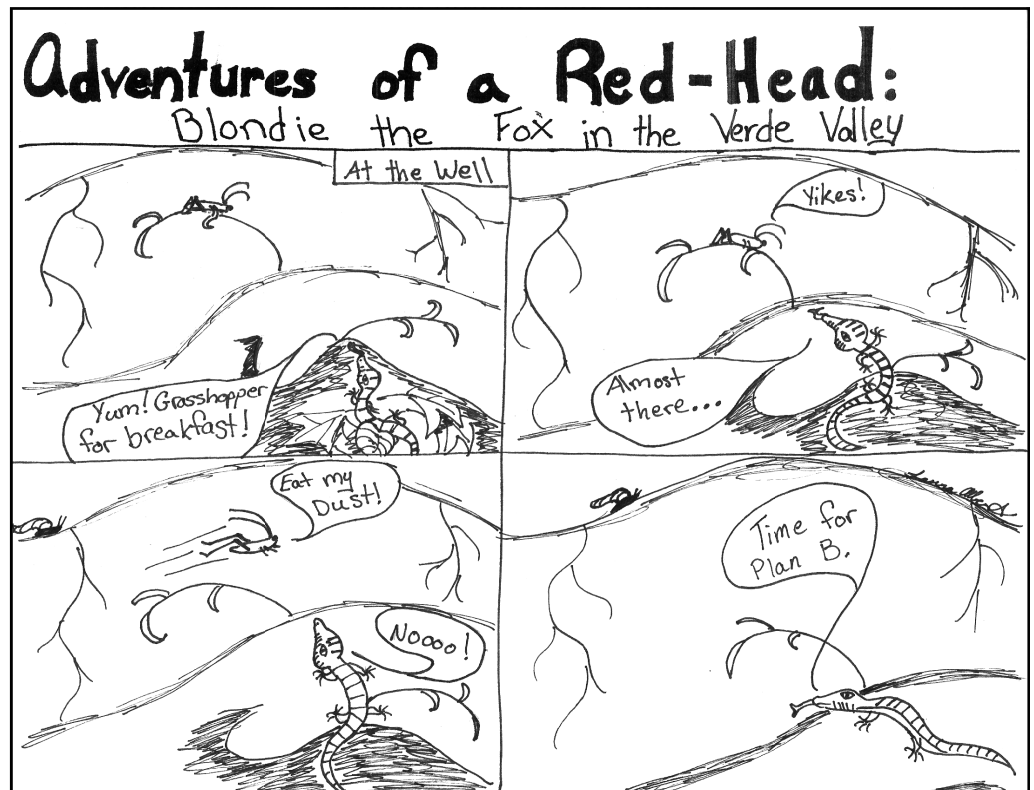 Adventures of a Red-Head:
Blondie the Fox in the Verde Valley
At the Well
Yum! Grasshopper
for breakfast!
Yikes!
Almost
there...
Eat my
Dust!
Noooo!
Time for
Plan B.